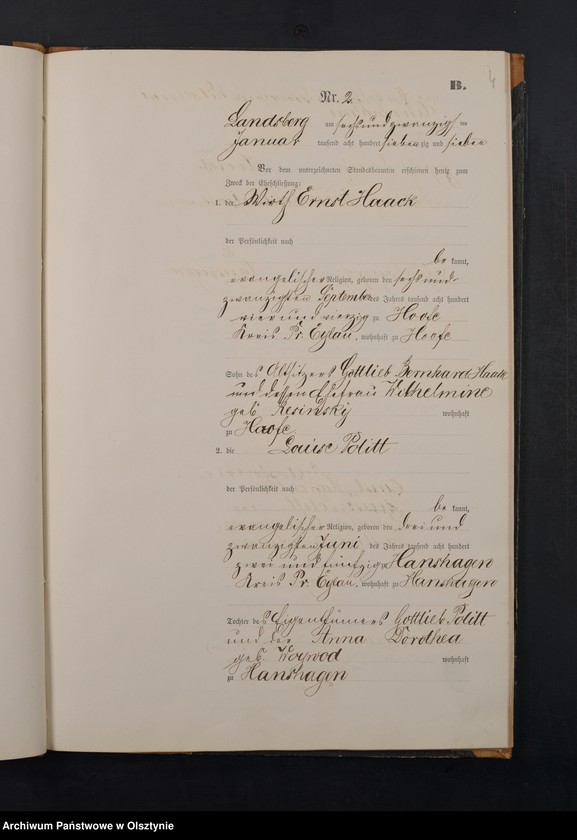 B.
4
Nr. 2
Landsberg am sechsundzwanzigsten
Januar tausend acht hundert siebenzig und sieben
Vor dem unterzeichneten Standesbeamten erschienen heute zum
Zweck der Eheschließung:
1. der Wirth Ernst Haack
der Persönlichkeit nach
be kannt,
evangelischer Religion, geboren den sechsund-
zwanzigsten September des Jahres tausend acht hundert
vier und vierzig zu Hoofe
Kreis Pr. Eylau, wohnhaft zu Hoofe
Sohn des Altsitzers Gottlieb Bernhard Haack
und dessen Ehefrau Wilhelmine
geb. wohnhaft
zu Hoofe
2. die Louise Politt
der Persönlichkeit nach
be kannt,
evangelischer Religion, geboren den drei und
zwanzigsten Juni des Jahres tausend acht hundert
zwei und fünfzig zu Hanshagen
Kreis Pr. Eylau, wohnhaft zu Hanshagen
Tochter des Eigenthümers Gottlieb Politt
und der Anna Dorothea
geb. Woywod wohnhaft
zu Hanshagen
Archiwum Państwowe w Olsztynie